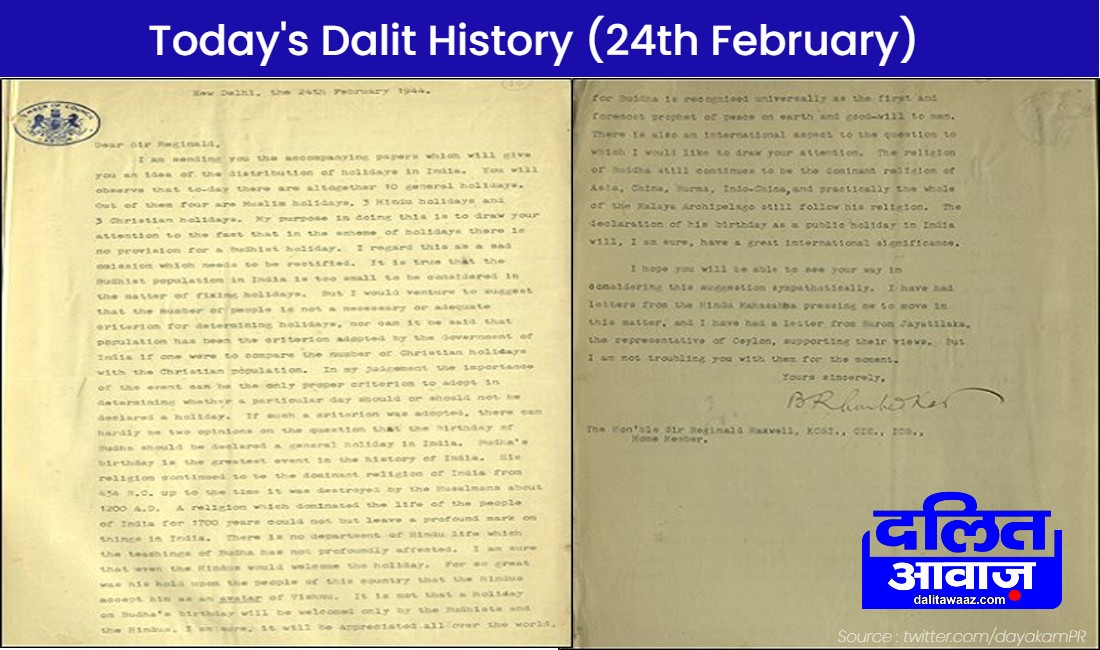 Today's Dalit History (24th February)
New Delhi, the 24th February 1944.
Dear Sir Reginald,
I am sending you the accompanying papers which will give
you an idea of the distribution of holidays in India. You will
observe that to-day there are altogether 10 general holidays.
Out of them four are Muslim holidays, 3 Hindu holidays and
3 Christian holidays. My purpose in doing this is to draw your
attention to the fact that in the scheme of holidays there is
no provision for a Budhist holiday. I regard this as a sad
omission which needs to be rectified. It is true that the
Budhist population in India is too small to be considered in
the matter of fixing holidays. But I would venture to suggest
that the number of people is not a necessary or adequate
criterion for determining holidays, nor can it be said that
population has been the criterion adopted by the Government of
India if one were to compare the number of Christian holidays
with the Christian population. In my judgement the importance
of the event can be the only proper criterion to adopt in
determining whether a particular day should or should not be
declared a holiday. If such a criterion was adopted, there can
hardly be two opinions on the question that the birthday of
Budha should be declared a general holiday in India. Budha's
birthday is the greatest event in the history of India. His
religion continued to be the dominant religion of India from
B.C. up to the time it was destroyed by the Musalmans about
1200 A.D. A religion which dominated the life of the people
of India for 1700 years could not but leave a profound mark on
things in India. There is no department of Hindu life which
the teachings of Budha has not profoundly affected. I am sure
that even the Hindus would welcome the holiday. For so great
was his hold upon the people of this country that the Hindus
accept him as an avatar of Vishnu. It is not that a holiday
on Budha's birthday will be welcomed only by the Budhists and
the Hindus. I am sure, it will be appreciated all over the world,
for Buddha is recognised universally as the first and
foremost prophet of peace on earth and good-will to man.
There is also an international aspect to the question to
which I would like to draw your attention. The religion
of Buddha still continues to be the dominant religion of
Asia, China, Burma, Indo-China, and practically the whole
of the Malaya Archipelago still follow his religion. The
declaration of his birthday as a public holiday in India
will, I am sure, have a great international significance.
I hope you will be able to see your way in
considering this suggestion sympathetically. I have had
letters from the Hindu Mahasabha pressing me to move in
this matter, and I have had a letter from Baron Jayatilaka,
the representative of Ceylon, supporting their views. But
I am not troubling you with them for the moment.
Yours sincerely,
BRAmbedkar
The Hon'ble Sir Reginald Maxwell, KCSI., CIE., ICS.,
Home Member.
दलित
आवाज़
dalitawaaz.com
Source : twitter.com/dayakamPR